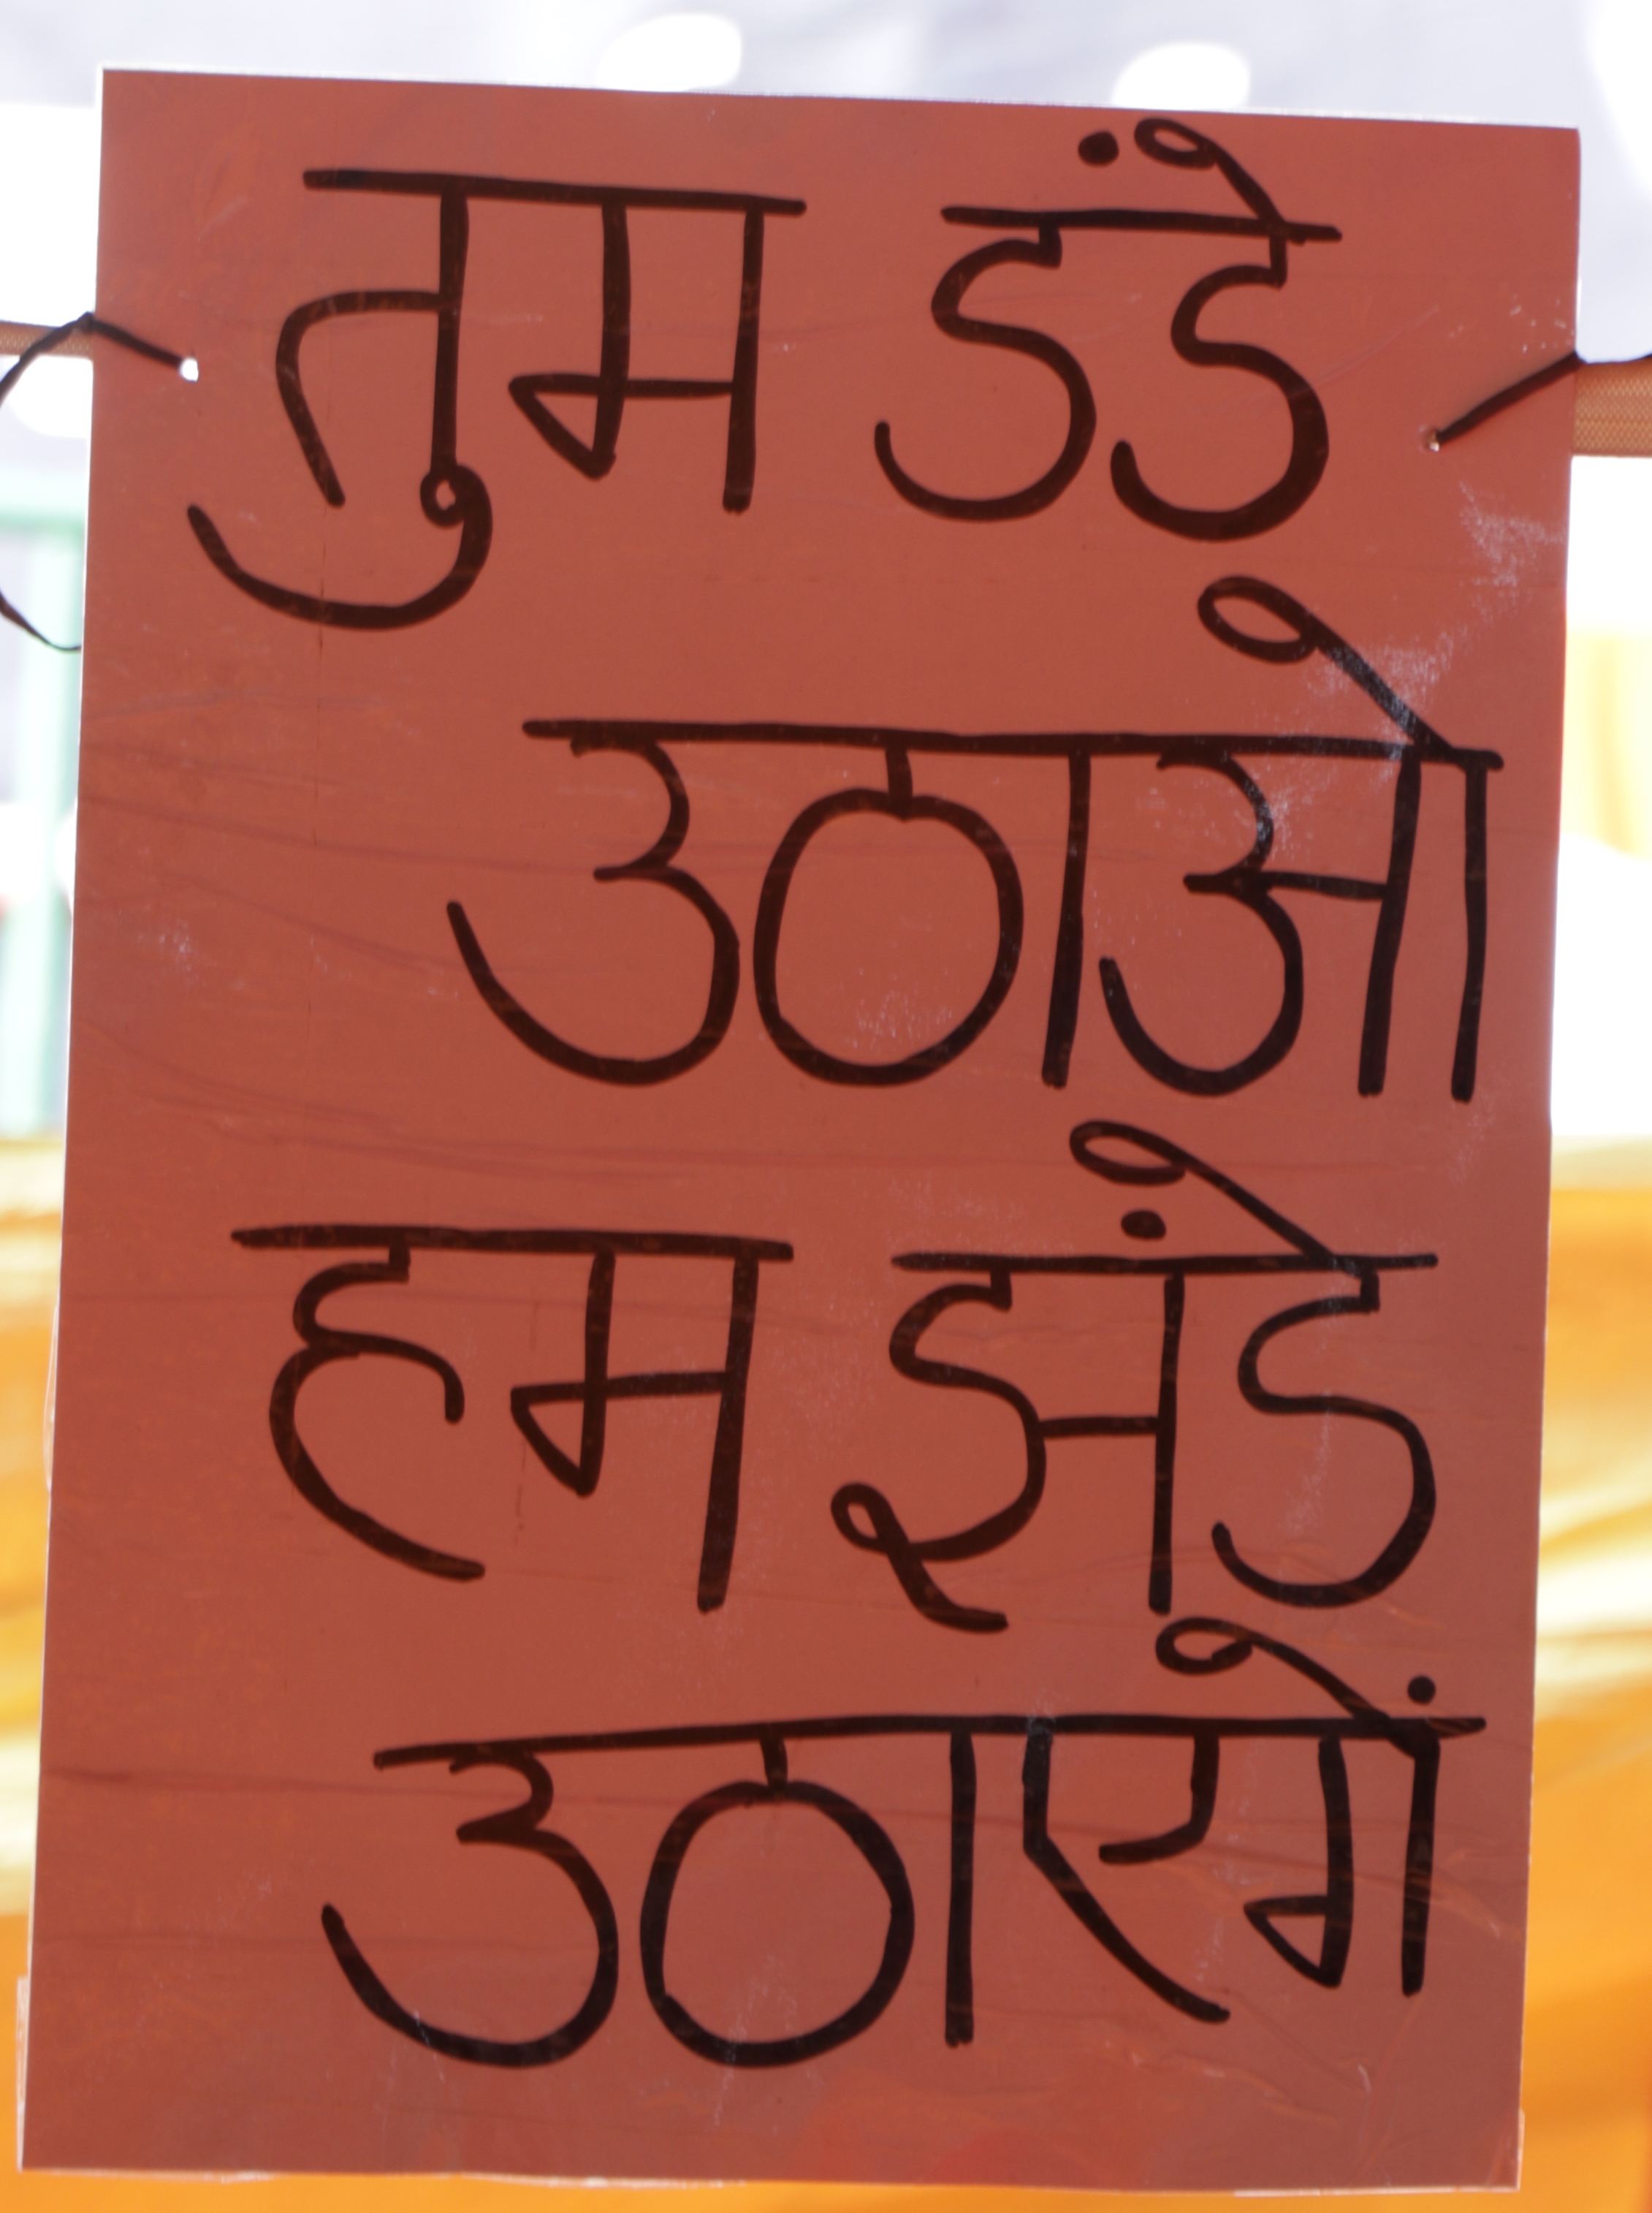 तुम डंडे
उठाओ
हम झंडे
उठाएगें